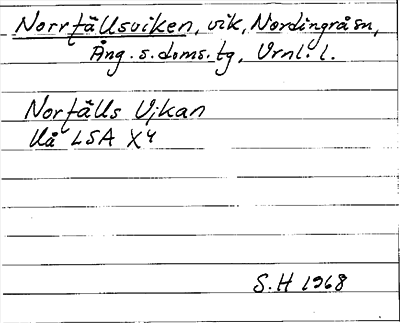 Norrfällsviken, vik, Nordingrå sn,
Ång. s. doms. tg, Vrnl. l.
Norfälls Vjkan
LSA X4
S.H 1968